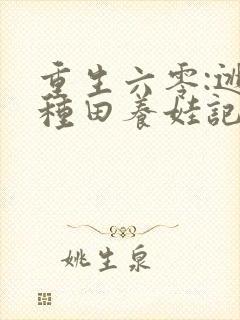 重生六零:逃
種田养娃記
姚生泉